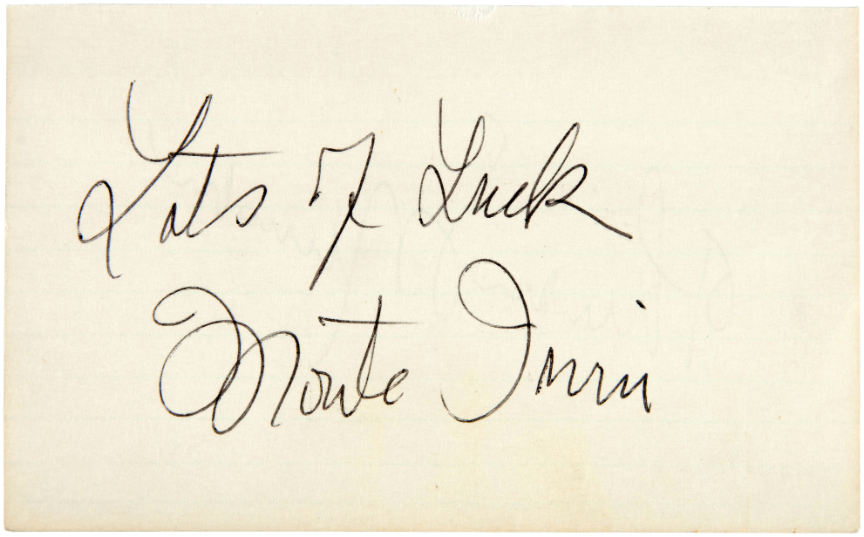 Lots of Luck
Monte Irvin